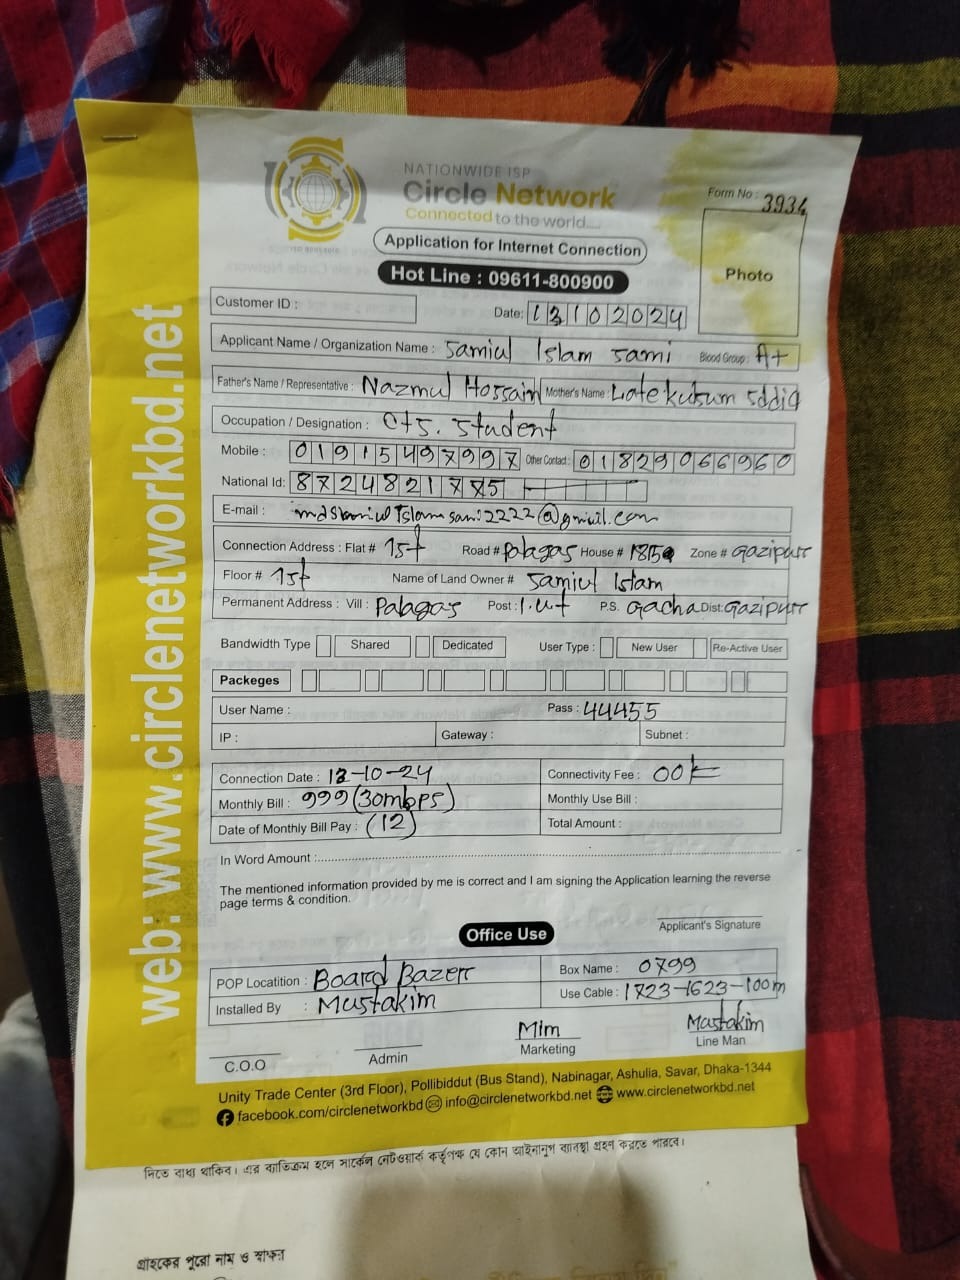 NATIONWIDE ISP
Circle Network
Connected to the world....
Form No : 3934
Application for Internet Connection
Hot Line : 09611-800900
Photo
Customer ID :
Date: 13102024
Applicant Name / Organization Name : Samiul Islam Sami Blood Group : A+
Father's Name / Representative : Nazmul Hossain Mother's Name : Late kulsum
Occupation / Designation : Student
Mobile : 01915497997 Other Contact : 01829066960
National Id: 8724821775
E-mail :
Connection Address : Flat # 1st Road # Palagas House # Zone # Gazipur
Floor # 1st Name of Land Owner # Samiul Islam
Permanent Address : Vill : Palagas Post : P.S. Gacha Dist: Gazipur
Bandwidth Type Shared Dedicated User Type : New User Re-Active User
Packeges
User Name : Pass : 44455
IP : Gateway : Subnet :
Connection Date : 13-10-24 Connectivity Fee : 00
Monthly Bill : 999 (30mbps) Monthly Use Bill :
Date of Monthly Bill Pay : (12) Total Amount :
In Word Amount :
The mentioned information provided by me is correct and I am signing the Application learning the reverse
page terms & condition.
Applicant's Signature
Office Use
POP Locatition : Board Bazerr Box Name : 0799
Installed By : Mustakim Use Cable : 1723-1623-100m
C.O.O Admin Mim Marketing Mustakim Line Man
Unity Trade Center (3rd Floor), Pollibiddut (Bus Stand), Nabinagar, Ashulia, Savar, Dhaka-1344
facebook.com/circlenetworkbd info@circlenetworkbd.net www.circlenetworkbd.net
web: www.circlenetworkbd.net
দিতে বাধ্য থাকিব। এর ব্যতিক্রম হলে সার্কেল নেটওয়ার্ক কর্তৃপক্ষ যে কোন আইনানুগ ব্যবস্থা গ্রহণ করতে পারবে।
গ্রাহকের পুরো নাম ও স্বাক্ষর